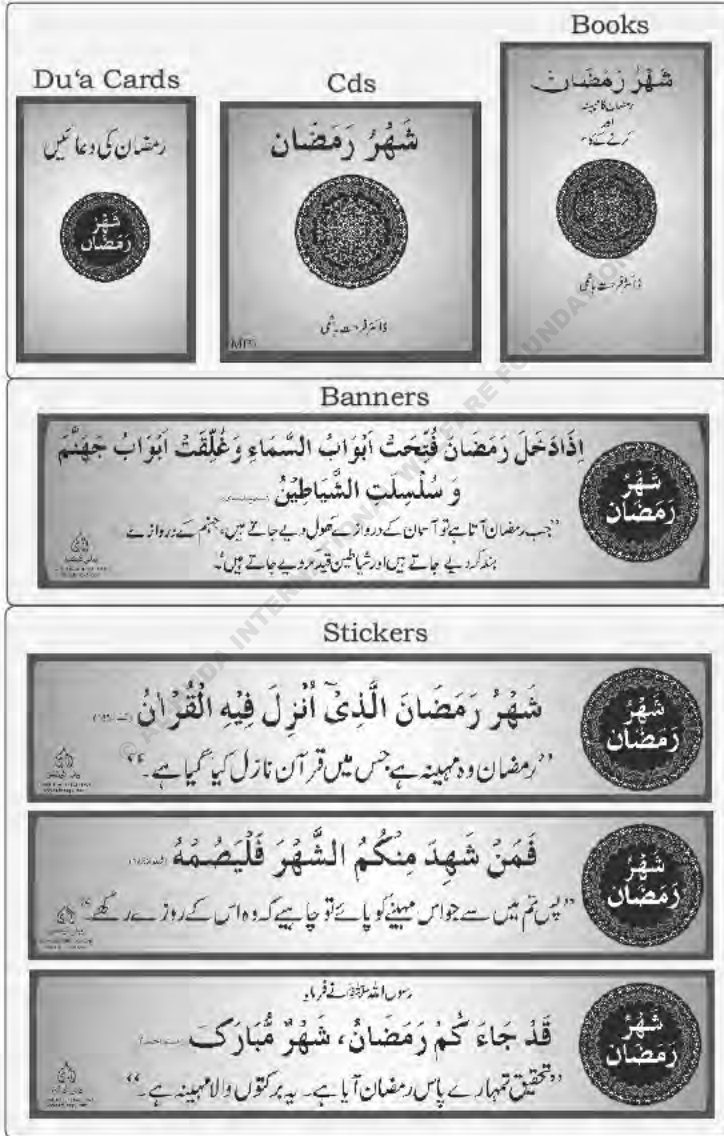 Books
Du‘a Cards
Cds
رمضان کی دعائیں
شَهْرُ رَمَضَان
شَهْرُ رَمَضَان
ڈاکٹر فرحت ہاشمی
(MP3)
شَهْرُ رَمَضَان
رمضان کا مہینہ
اور
کرنے کے کام
ڈاکٹر فرحت ہاشمی
Banners
اِذَا دَخَلَ رَمَضَانُ فُتِّحَتْ اَبْوَابُ السَّمَاءِ وَ غُلِّقَتْ اَبْوَابُ جَهَنَّمَ
وَ سُلْسِلَتِ الشَّيَاطِيْنُ
شَهْرُ رَمَضَان
”جب رمضان آتا ہے تو آسمان کے دروازے کھول دیے جاتے ہیں، جہنم کے دروازے
بند کر دیے جاتے ہیں اور شیاطین قید کر دیے جاتے ہیں“۔
Stickers
شَهْرُ رَمَضَانَ الَّذِىْٓ اُنْزِلَ فِيْهِ الْقُرْاٰنُ
شَهْرُ رَمَضَان
”رمضان وہ مہینہ ہے جس میں قرآن نازل کیا گیا ہے۔“
فَمَنْ شَهِدَ مِنْكُمُ الشَّهْرَ فَلْيَصُمْهُ
شَهْرُ رَمَضَان
”پس تم میں سے جو اس مہینے کو پائے تو چاہیے کہ وہ اس کے روزے رکھے۔“
رسول اللہ ﷺ نے فرمایا
قَدْ جَاءَ كُمْ رَمَضَانُ، شَهْرٌ مُّبَارَكٌ
شَهْرُ رَمَضَان
”تحقیق تمہارے پاس رمضان آیا ہے۔ یہ برکتوں والا مہینہ ہے۔“
© AL HUDA INTERNATIONAL WELFARE FOUNDATION